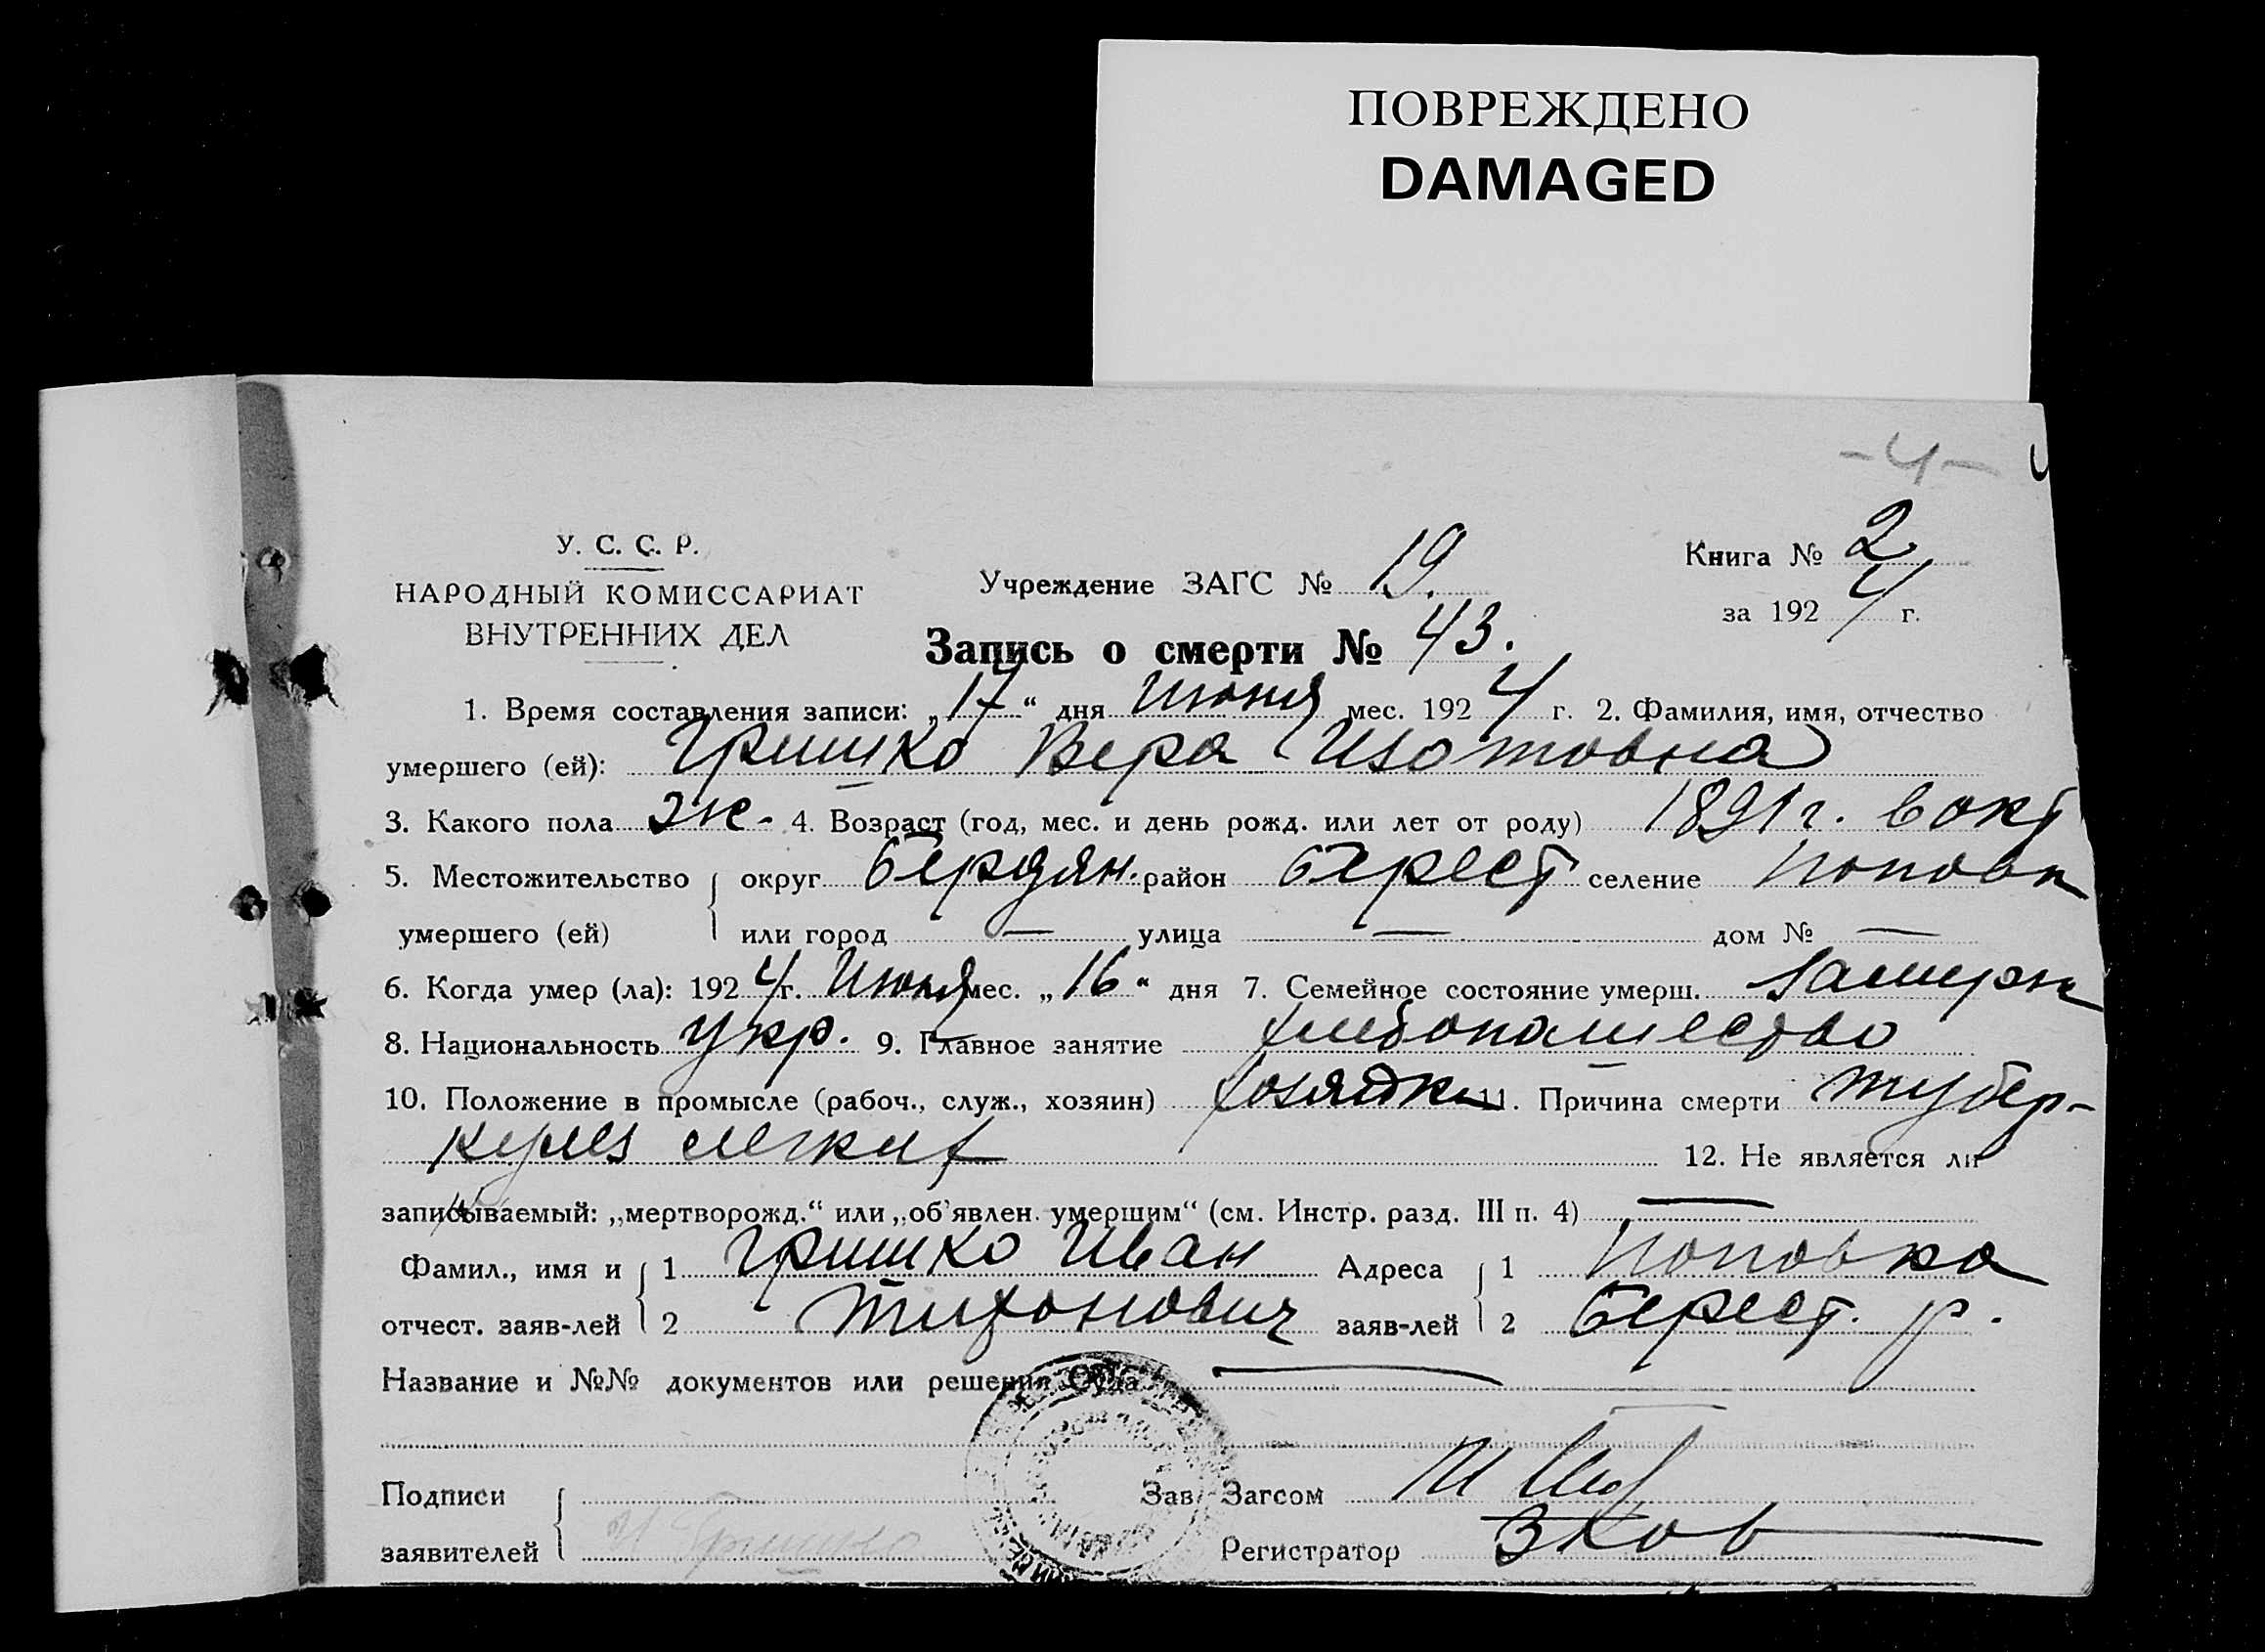 ПОВРЕЖДЕНО
DAMAGED
-4-
У. С. С. Р.
НАРОДНЫЙ КОМИССАРИАТ
ВНУТРЕННИХ ДЕЛ
Учреждение ЗАГС № 19.
Книга № 2
за 1924 г.
Запись о смерти № 43.
1. Время составления записи: „17“ дня Июня мес. 1924 г. 2. Фамилия, имя, отчество
умершего (ей): Гришко Вера Изотовна
3. Какого пола Ж- 4. Возраст (год, мес. и день рожд. или лет от роду) 1891 г. 6 окт
5. Местожительство округ Бердян. район Берест селение Поповк
умершего (ей) или город — улица — дом № —
6. Когда умер (ла): 1924 г. Июня мес. „16“ дня 7. Семейное состояние умерш. Замужн
8. Национальность Укр. 9. Главное занятие хлебопашество
10. Положение в промысле (рабоч., служ., хозяин) хозяйка 11. Причина смерти тубер-
кулез легких 12. Не является ли
записываемый: „мертворожд.“ или „об'явлен. умершим“ (см. Инстр. разд. III п. 4) —
Фамил., имя и 1 Гришко Иван Адреса 1 Поповка
отчест. заяв-лей 2 Тихонович заяв-лей 2 Берест. р.
Название и №№ документов или решения Суда —
Подписи Зав. Загсом
заявителей И Гришко Регистратор